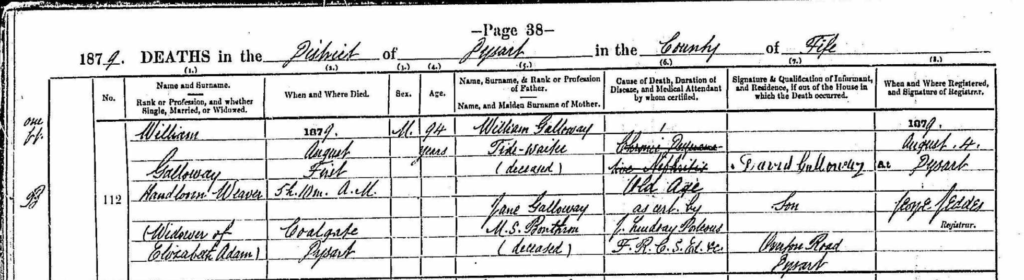 —Page 38—
1879. DEATHS in the District of Dysart in the County of Fife
(1.) (2.) (3.) (4.) (5.) (6.) (7.) (8.)
No.
Name and Surname.
Rank or Profession, and whether Single, Married, or Widowed.
When and Where Died.
Sex.
Age.
Name, Surname, & Rank or Profession of Father.
Name, and Maiden Surname of Mother.
Cause of Death, Duration of Disease, and Medical Attendant by whom certified.
Signature & Qualification of Informant, and Residence, if out of the House in which the Death occurred.
When and Where Registered, and Signature of Registrar.
112
William
Galloway
Handloom Weaver
(Widower of
Elizabeth Adam)
1879.
August
First
5h. 10m. A.M.
Coalgate
Dysart
M.
94
years
William Galloway
Tide-waiter
(deceased)
Jane Galloway
M.S. Bonthron
(deceased)
Chronic
Nephritis
Old Age
as cert. by
J. Lindsay
F.R.C.S. Ed. &c
David Galloway
Son
Road
Dysart
1879.
August 4.
at Dysart
George Geddes
Registrar.